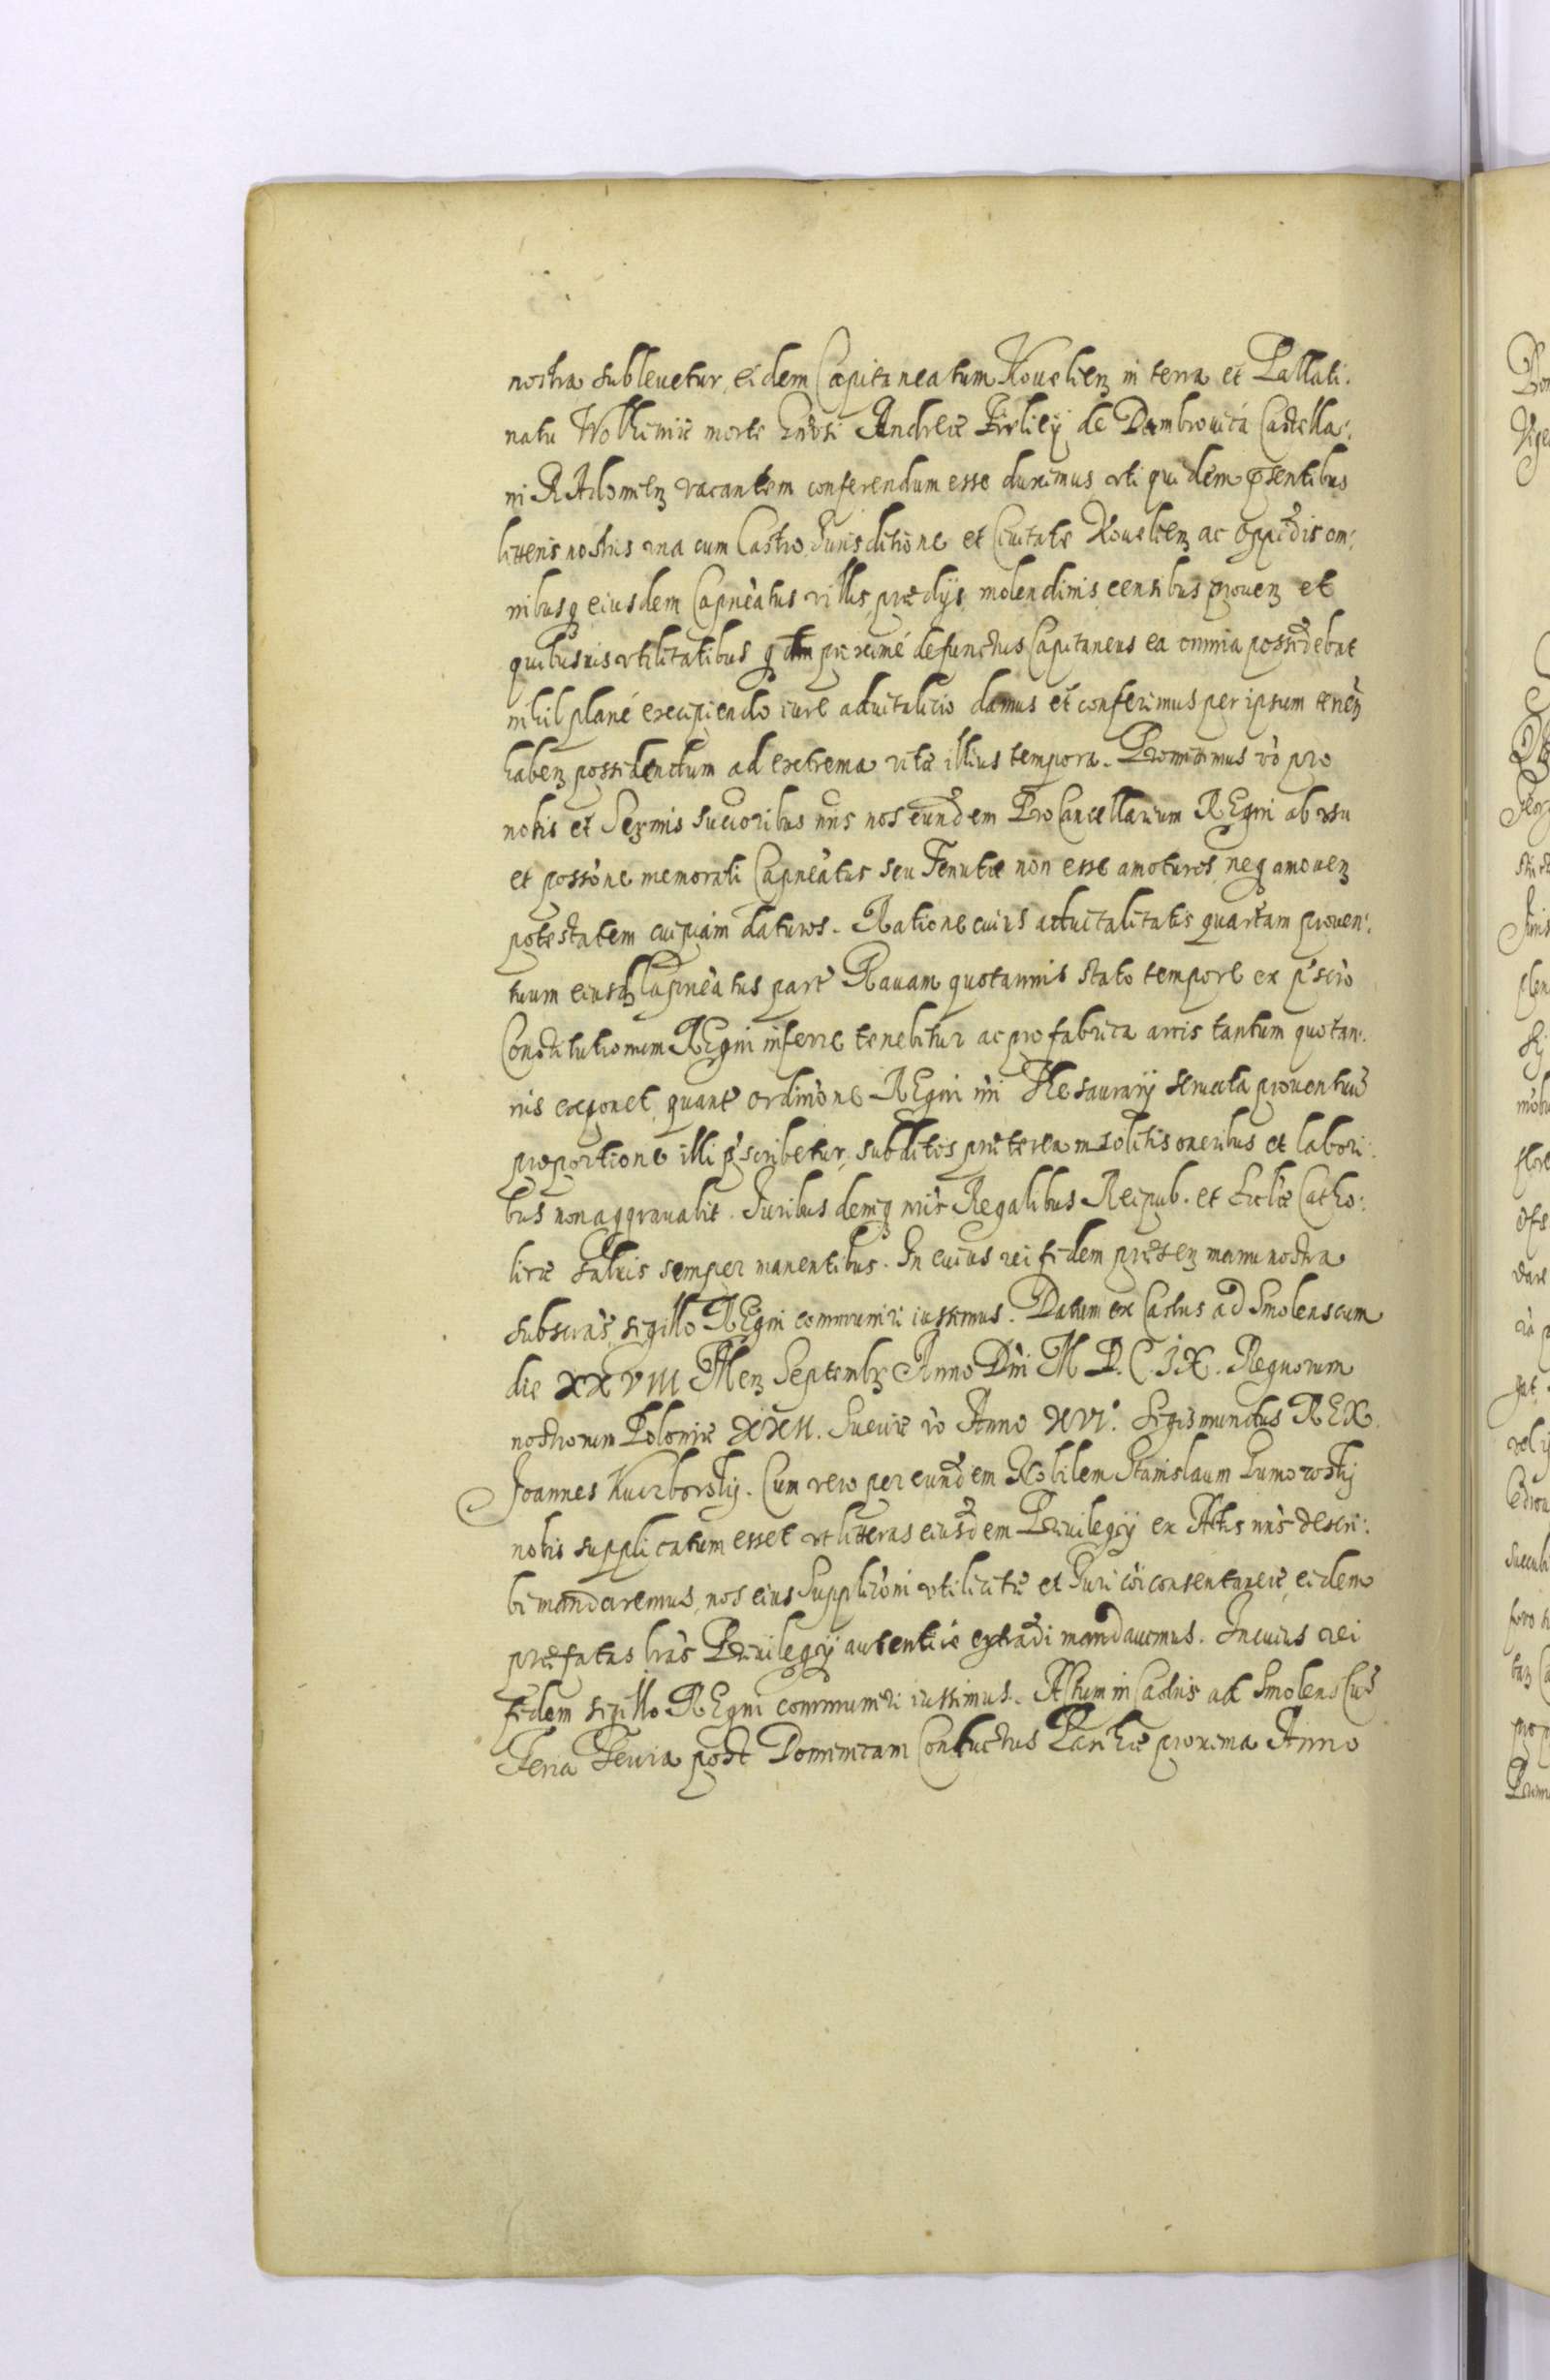 nostra subleuetur, eidem Capitaneatum Koueliens in terra et Pallati:
natu Wolhiniæ morte Gnosi Andreæ Firliey de Dambrouica Castella:
ni RAdomiens vacantem conferendum esse duximus vti quidem pñsentibus
litteris nostris vna cum Castro, Jurisditione et Ciuitate Koueliens ac oppidis om:
nibusq eiusdem Capneàtus villis, prædijs, molendinis, censibus, prouen et
quibusuis vtilitatibus proximé defunctus Capitaneus ea omnia possidebat
nihil plané excipiendo iure aduitalicio damus et conferimus per ipsum tenen
haben possidendum ad extrema vitæ illius tempora. Promittimus vò pro
nobis et Sermis Succoribus nris nos eundem ProCancellarium REgni ab vsu
et possòne memorati Capneàtus seu Tenutæ non esse amoturos, neq amouen
potestatem cuipiam daturos. Ratione cuius aduitalitatis quartam prouen:
tuum eiusd Capneàtus parte Rauam quotannis stato tempore ex pscrò
Constitutionum REgni inferre tenebitur ac pro fabrica arcis tantum quotan:
nis exponet, quant ordinòne REgni nri Thesaurarij seruata prouentuu
proportione illi pscribetur, subditos præterea insolitis oneribus et labori:
bus non aggrauabit. Juribus deniq nris Regalibus Reipub. et Ecclæ Catho:
licæ saluis semper manentibus. In cuius rei fidem præsen manu nostra
subscras, sigillo REgni communiri iussimus. Datum ex Castris ad Smolenscum
die XXVIII Mens Septembr Anno Dni M D.C.IX. Regnorum
nostrorum Poloniæ XXII. Sueciæ vò Anno XVI. Sigismundus REX.
Joannes Kuczborskij. Cum vero per eundem Nobilem Stanislaum
nobis supplicatum esset vt litteras eiusdem Priuilegij ex Actis nris descri:
bi mandaremus, nos eius Supplicòni vtilitati et Juri còi consentaneæ, eidem
præfatas lras Priuilegij autenticè extradi mandauimus. In cuius rei
fidem sigillo REgni communiri iussimus. Actum in Castris ad Smolenscu
Feria Tercia post Dominicam Conductus Paschæ proxima Anno